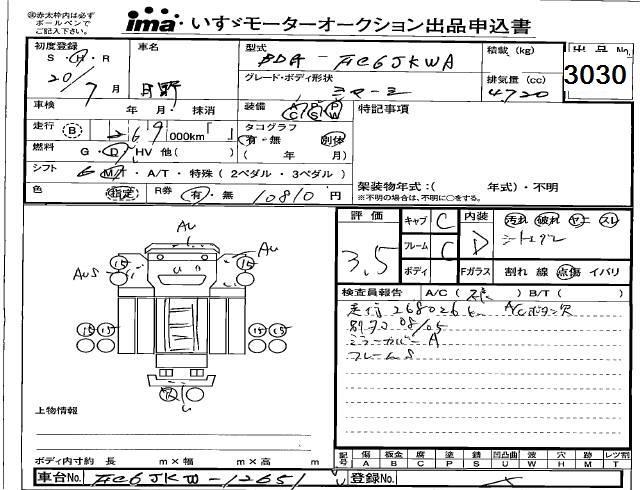 ㊟赤太枠内は必ず
ボールペンで
ご記入下さい。
ima いすゞモーターオークション出品申込書
初度登録 車名 型式 積載 (kg) 出品No.
S・H・R BDG-FC6JKWA
20/7月 日野 グレード・ボディ形状 排気量(cc) 3030
4720
車検 年 月・抹消 装備 AC PS PW 特記事項
走行 B 269 000km「 」 タコグラフ
有・無 別体
燃料 G・D・HV 他( ) ( 年 月)
シフト 6 M/T・A/T・特殊(2ペダル・3ペダル) 架装物年式:( 年式)・不明
※不明の場合は、不明に○をする。
色 指定 R券 有・無 10810円
評価 キャブ C 内装 汚れ 破れ ヤニ スレ
3.5 フレーム C D
ボディ Fガラス 割れ 線 点傷 イバリ
AU
15 15 AU
AUS
検査員報告 A/C( ) B/T( )
走行268026km A/Cボタン欠
08/05
ミラーカバーA
フレームS
15 15 15 15
U
上物情報
ボディ内寸約 長 m×幅 m×高 m
記号 傷 板金 腐 塗 錆 凹凸曲 波 穴 跡 レツ割
A B C P S U W H M T
車台No. FC6JKW-12651 登録No.